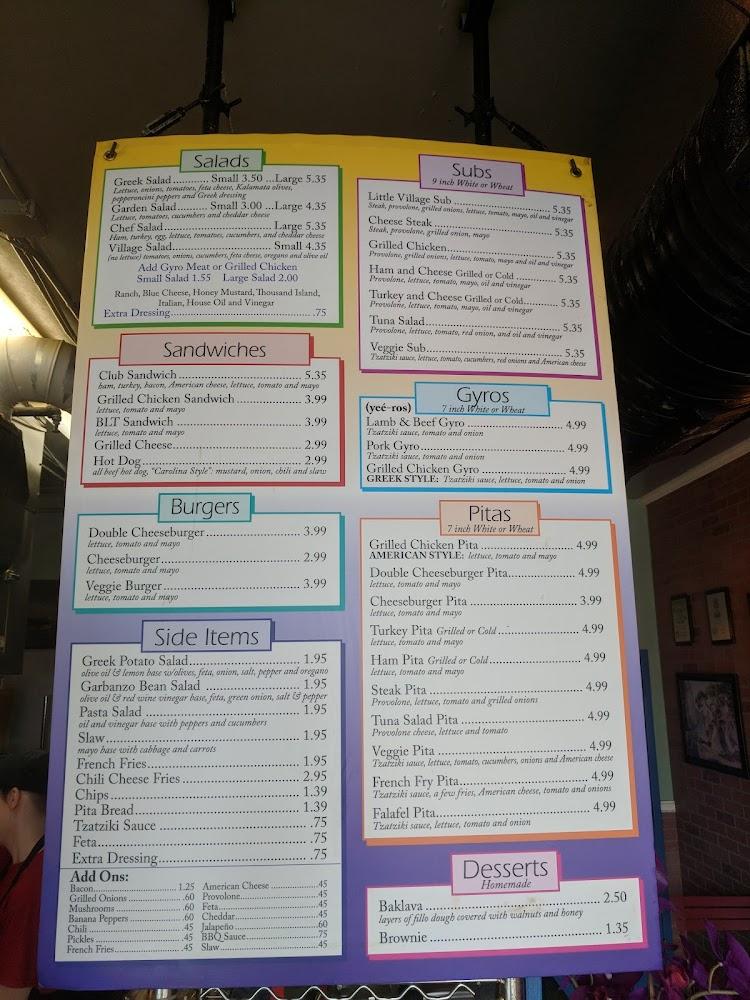 Salads
Greek Salad........... Small 3.50 ...Large 5.35
Lettuce, onions, tomatoes, feta cheese, Kalamata olives,
pepperoncini peppers and Greek dressing
Garden Salad.......... Small 3.00 ...Large 4.35
Lettuce, tomatoes, cucumbers and cheddar cheese
Chef Salad.................................. Large 5.35
Ham, turkey, egg, lettuce, tomatoes, cucumbers, and cheddar cheese
Village Salad............................... Small 4.35
(no lettuce) tomatoes, onions, cucumbers, feta cheese, oregano and olive oil
Add Gyro Meat or Grilled Chicken
Small Salad 1.55 Large Salad 2.00
Ranch, Blue Cheese, Honey Mustard, Thousand Island,
Italian, House Oil and Vinegar
Extra Dressing.............................................. .75
Sandwiches
Club Sandwich ................................ 5.35
ham, turkey, bacon, American cheese, lettuce, tomato and mayo
Grilled Chicken Sandwich ................... 3.99
lettuce, tomato and mayo
BLT Sandwich ................................. 3.99
lettuce, tomato and mayo
Grilled Cheese................................. 2.99
Hot Dog........................................ 2.99
all beef hot dog, "Carolina Style": mustard, onion, chili and slaw
Burgers
Double Cheeseburger.......................... 3.99
lettuce, tomato and mayo
Cheeseburger.................................. 2.99
lettuce, tomato and mayo
Veggie Burger................................. 3.99
lettuce, tomato and mayo
Side Items
Greek Potato Salad............................ 1.95
olive oil & lemon base w/olives, feta, onion, salt, pepper and oregano
Garbanzo Bean Salad .......................... 1.95
olive oil & red wine vinegar base, feta, green onion, salt & pepper
Pasta Salad ................................... 1.95
oil and vinegar base with peppers and cucumbers
Slaw........................................... 1.95
mayo base with cabbage and carrots
French Fries................................... 1.95
Chili Cheese Fries ............................ 2.95
Chips.......................................... 1.39
Pita Bread..................................... 1.39
Tzatziki Sauce ................................ .75
Feta........................................... .75
Extra Dressing................................. .75
Add Ons:
Bacon........................ 1.25
Grilled Onions .............. .60
Mushrooms ................... .60
Banana Peppers .............. .60
Chili ....................... .45
Pickles ..................... .45
French Fries................. .45
American Cheese ............. .45
Provolone.................... .45
Feta......................... .45
Cheddar ..................... .45
Jalapeño .................... .60
BBQ Sauce.................... .75
Slaw......................... .45
Subs
9 inch White or Wheat
Little Village Sub ............................ 5.35
Steak, provolone, grilled onions, lettuce, tomato, mayo, oil and vinegar
Cheese Steak .................................. 5.35
Steak, provolone, grilled onion, mayo
Grilled Chicken................................ 5.35
Provolone, grilled onions, lettuce, tomato, mayo and oil and vinegar
Ham and Cheese Grilled or Cold ................ 5.35
Provolone, lettuce, tomato, mayo, oil and vinegar
Turkey and Cheese Grilled or Cold.............. 5.35
Provolone, lettuce, tomato, mayo, oil and vinegar
Tuna Salad..................................... 5.35
Provolone, lettuce, tomato, red onion, and oil and vinegar
Veggie Sub..................................... 5.35
Tzatziki sauce, lettuce, tomato, cucumbers, red onions and American cheese
Gyros
(yeé-ros)
7 inch White or Wheat
Lamb & Beef Gyro .............................. 4.99
Tzatziki sauce, tomato and onion
Pork Gyro...................................... 4.99
Tzatziki sauce, tomato and onion
Grilled Chicken Gyro .......................... 4.99
GREEK STYLE: Tzatziki sauce, lettuce, tomato and onion
Pitas
7 inch White or Wheat
Grilled Chicken Pita .......................... 4.99
AMERICAN STYLE: lettuce, tomato and mayo
Double Cheeseburger Pita....................... 4.99
lettuce, tomato and mayo
Cheeseburger Pita ............................. 3.99
lettuce, tomato and mayo
Turkey Pita Grilled or Cold ................... 4.99
lettuce, tomato and mayo
Ham Pita Grilled or Cold....................... 4.99
lettuce, tomato and mayo
Steak Pita .................................... 4.99
Provolone, lettuce, tomato and grilled onions
Tuna Salad Pita ............................... 4.99
Provolone cheese, lettuce and tomato
Veggie Pita ................................... 4.99
Tzatziki sauce, lettuce, tomato, cucumbers, onions and American cheese
French Fry Pita................................ 4.99
Tzatziki sauce, a few fries, American cheese, tomato and onions
Falafel Pita................................... 4.99
Tzatziki sauce, lettuce, tomato and onion
Desserts
Homemade
Baklava ....................................... 2.50
layers of fillo dough covered with walnuts and honey
Brownie ....................................... 1.35